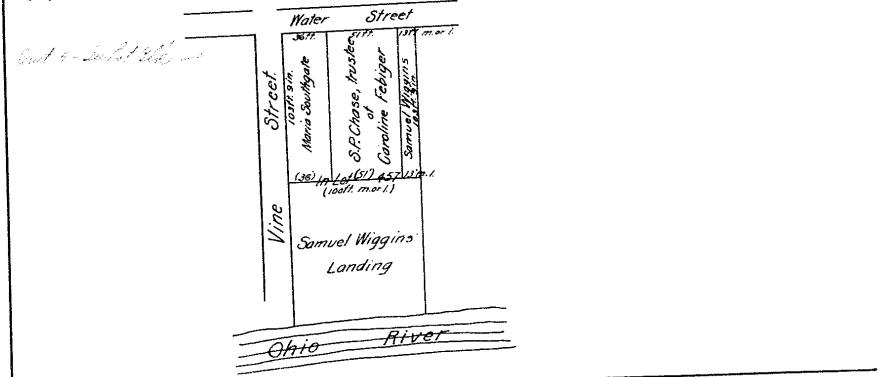 Water Street
36ft. 51ft. 13ft m. or l.
Street.
Vine
103ft. 9in.
Maria Southgate
S.P. Chase, trustee
of
Caroline Febiger
Samuel Wiggins
103ft. 9in.
(36) In Lot (51) 457 13' m. l.
(100ft. m. or l.)
Samuel Wiggins'
Landing
Ohio River